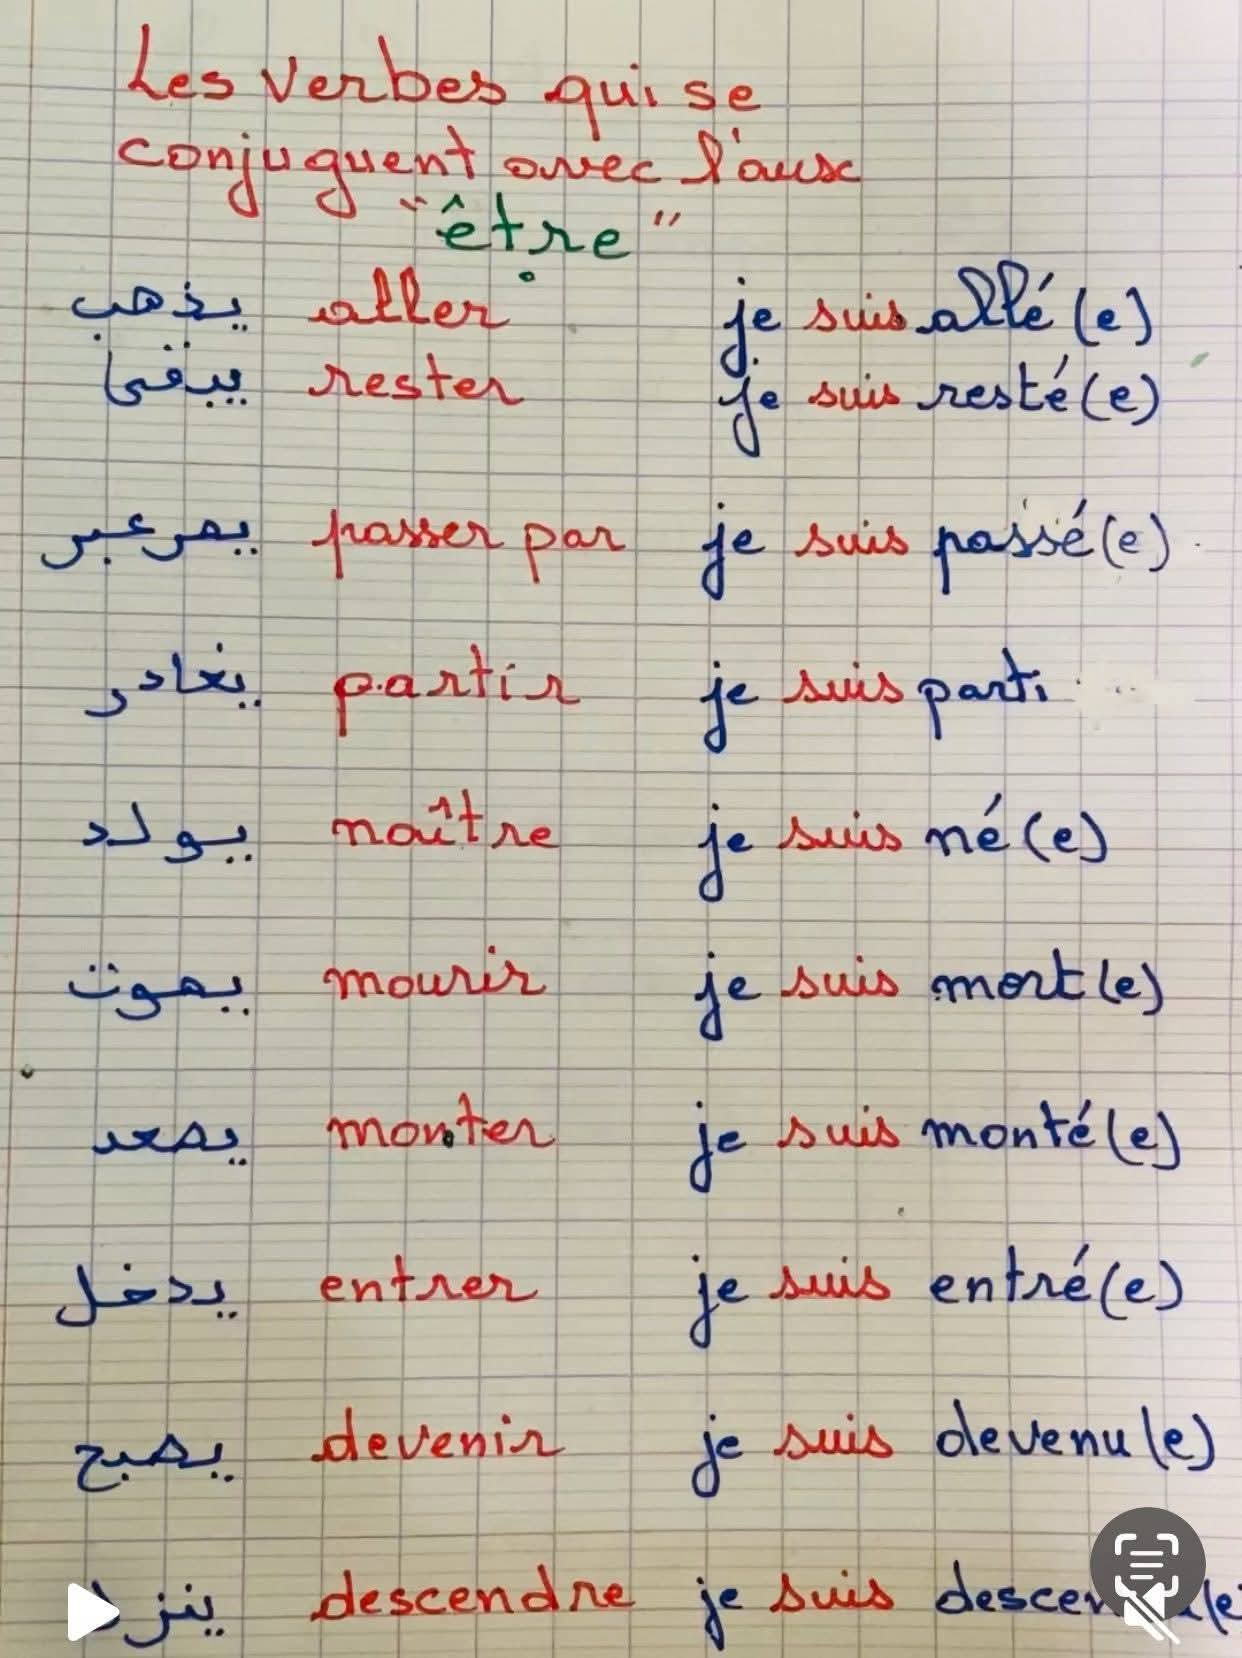 Les verbes qui se
conjuguent avec l'aux
"être"
يذهب aller je suis allé(e)
يبقى rester je suis resté(e)
يمر عبر passer par je suis passé(e)
يغادر partir je suis parti
يولد naître je suis né(e)
يموت mourir je suis mort(e)
يصعد monter je suis monté(e)
يدخل entrer je suis entré(e)
يصبح devenir je suis devenu(e)
descendre je suis